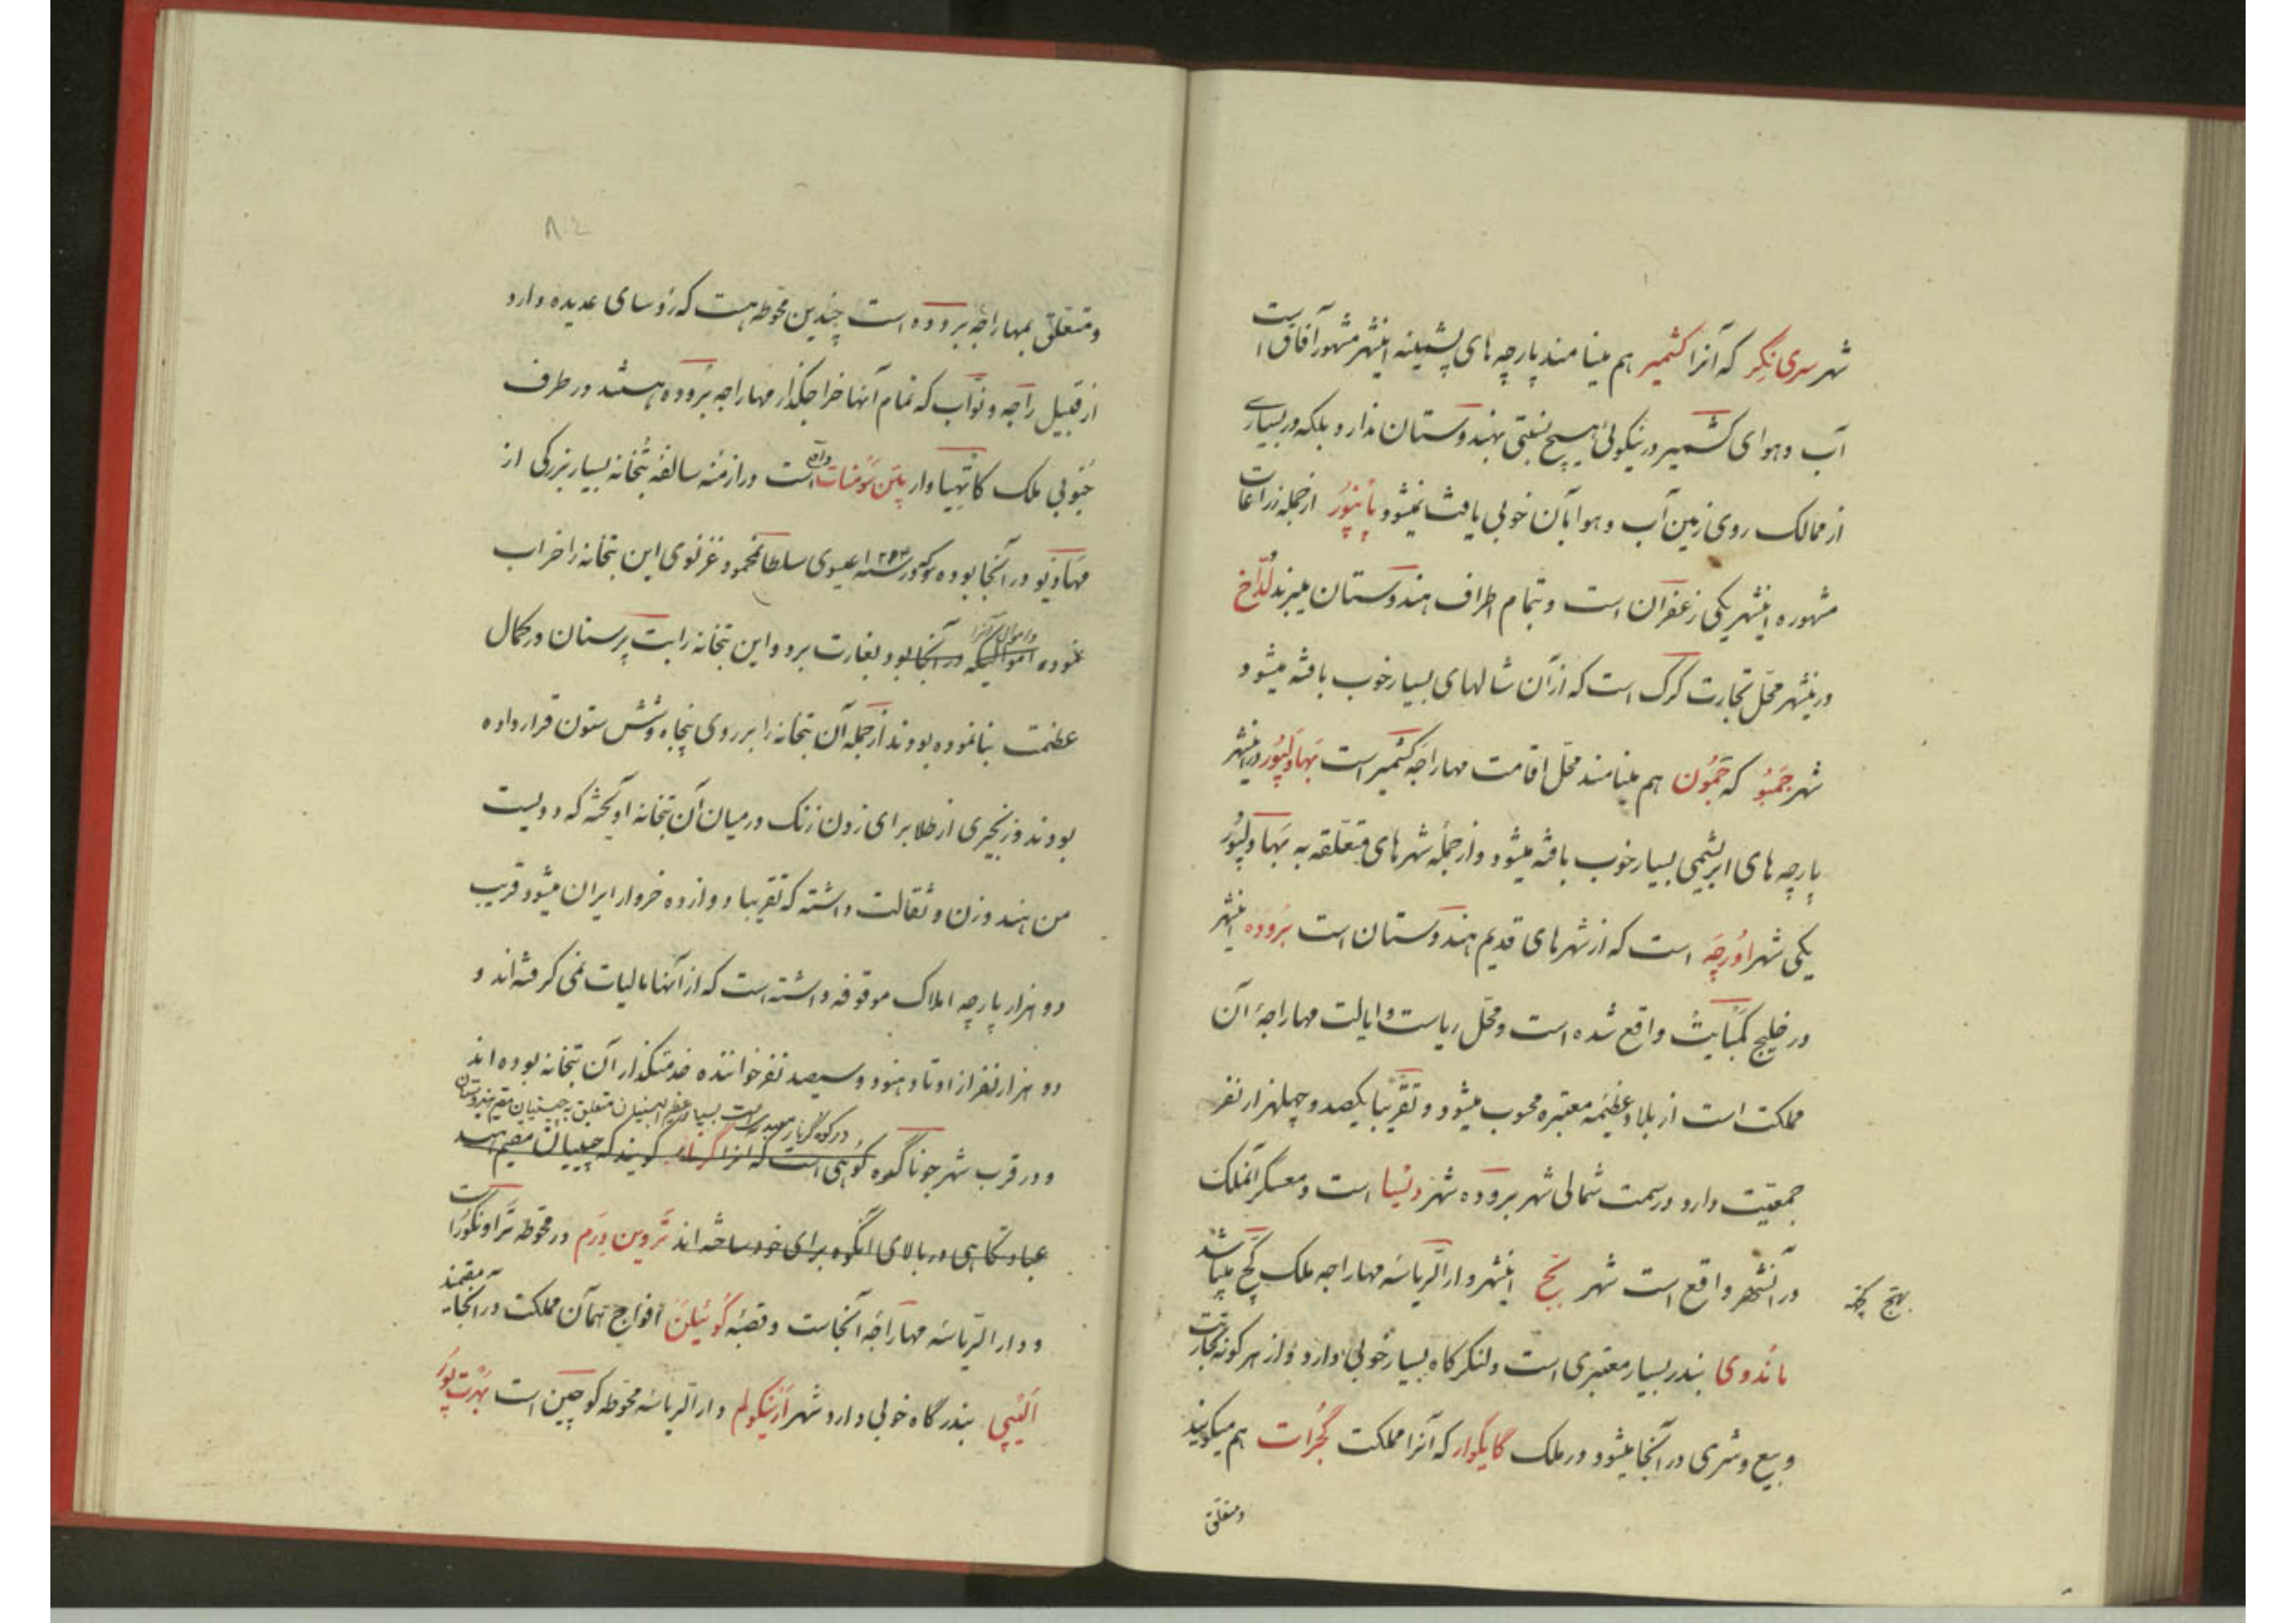 شهر سری نگر که آنرا کشمیر هم مینامند پارچه های پشمینه اینشهر مشهور آفاق است
آب و هوای کشمیر در نیکوئی هیچ نسبتی بهندوستان ندارد بلکه در بسیاری
از ممالک روی زمین آب و هوا بآن خوبی یافت نمیشود پانپور از جمله زراعات
مشهوره اینشهر یکی زعفران است و بتمام اطراف هندوستان میبرند لداخ
درینشهر محل تجارت کرک است که از آن شالهای بسیار خوب بافته میشود
شهر جمبو که جمون هم مینامند محل اقامت مهاراجه کشمیر است بهاولپور در اینشهر
پارچه های ابریشمی بسیار خوب بافته میشود و از جمله شهرهای متعلقه به بهاولپور
یکی شهر اورچه است که از شهرهای قدیم هندوستان است بروده اینشهر
در خلیج کمبایت واقع شده است و محل ریاست و ایالت مهاراجهٔ آن
مملکت است از بلاد عظیمه معتبره محسوب میشود و تقریبا یکصد و چهلهزار نفر
جمعیت دارد در سمت شمالی شهر بروده شهر دیسا است و معسکر آنملک
در آنشهر واقع است شهر بج اینشهر دار الریاسه مهاراجه ملک کج میباشد
بهج کچهه
ماندوی بندر بسیار معتبری است و لنگرگاه بسیار خوبی دارد و از هر گونه تجارت
و بیع و شری در آنجا میشود در ملک گایکوار که آنرا مملکت گجرات هم میگویند
و متعلق
۸۲
و متعلق بمهاراجه بروده است چندین محوطه هست که رؤسای عدیده دارد
از قبیل راجه و نواب که تمام آنها خراجگذار مهاراجه بروده هستند در طرف
جنوبی ملک کاتهیاوار پتن سومنات است در ازمنه سالفه بتخانه بسیار بزرگی از
مهادیو در آنجا بوده که در سنه ۱۰۲۴ عیسوی سلطان محمود غزنوی این بتخانه را خراب
و اموال آنرا
نموده اموالیکه در آنجا بود بغارت برد و این بتخانه را بت پرستان در کمال
عظمت بنا نموده بودند از جمله آن بتخانه را بر روی پنجاه و شش ستون قرار داده
بودند و زنجیری از طلا برای زدن زنک در میان آن بتخانه آویخته که دویست
من هند وزن و ثقالت داشته که تقریبا دوازده خروار ایران میشود قریب
دو هزار پارچه املاک موقوفه داشته است که از آنها مالیات نمی گرفته اند و
دو هزار نفر از اوتاد هنود و سیصد نفر خواننده خدمتگذار آن بتخانه بوده اند
در کوه گرنار معبدیست بسیار عظیم متعلق به جینیان مقیم هندوستان
و در قرب شهر جوناگده کوهی است که آنرا گرنار گویند که جینیان مقیم هند
عبادتگاهی در بالای آنکوه برای خود ساخته اند تروین درم در محوطه تراونکور است
و دار الریاسه مهاراجه آنجاست و قصبه کوئیلن افواج همان مملکت در آنجا مقیمند
الیپی بندرگاه خوبی دارد شهر ارنیکولم دار الریاسه محوطه کوچین است بهرت پور